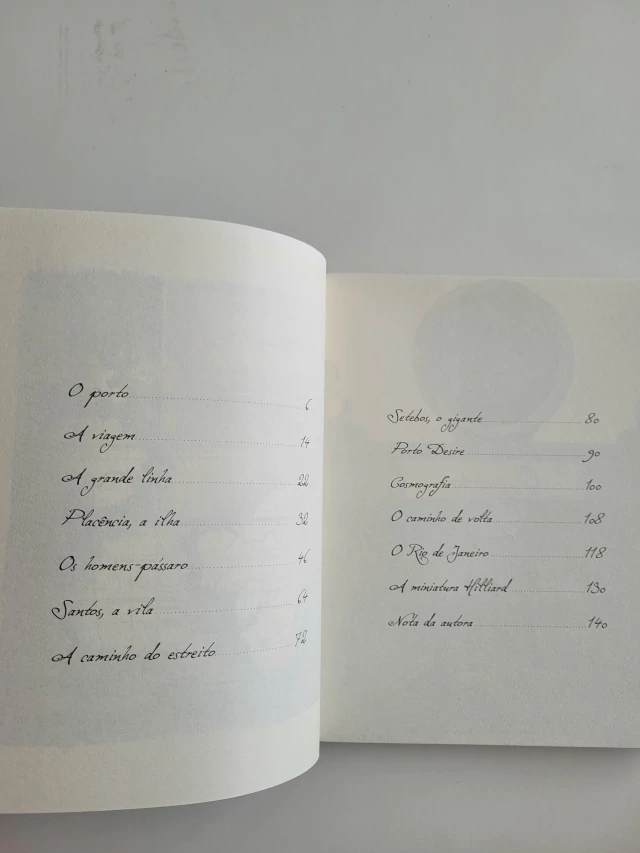 O porto 6
A viagem 14
A grande linha 22
Placência, a ilha 32
Os homens-pássaro 46
Santos, a vila 64
A caminho do estreito 72
Setebos, o gigante 80
Porto Desire 90
Cosmografia 100
O caminho de volta 108
O Rio de Janeiro 118
A miniatura Hilliard 130
Nota da autora 140